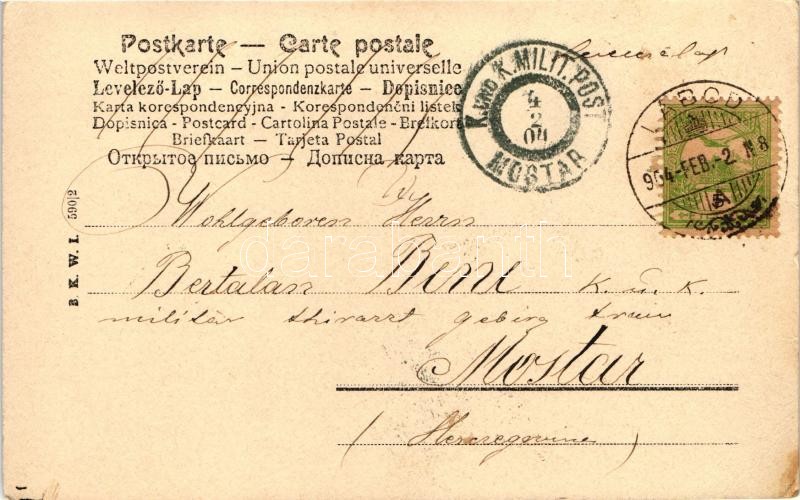 Postkarte — Carte postale
Weltpostverein - Union postale universelle
Levelező-Lap - Correspondenzkarte - Dopisnice
Karta korespondencyjna - Korespondenčni listek
Dopisnica - Postcard - Cartolina Postale - Brefkort
Briefkaart — Tarjeta Postal
Открытое письмо — Дописна карта
K. UND K. MILIT. POST
4
2
04
MOSTAR
LÁBOD
904-FEB.-2. N8
B. K. W. I. 590|2
Wohlgeboren Herrn
Bertalan Bene k. u. k.
militär thirarzt gebirg train
Mostar
(Hercegovina)
darabanth